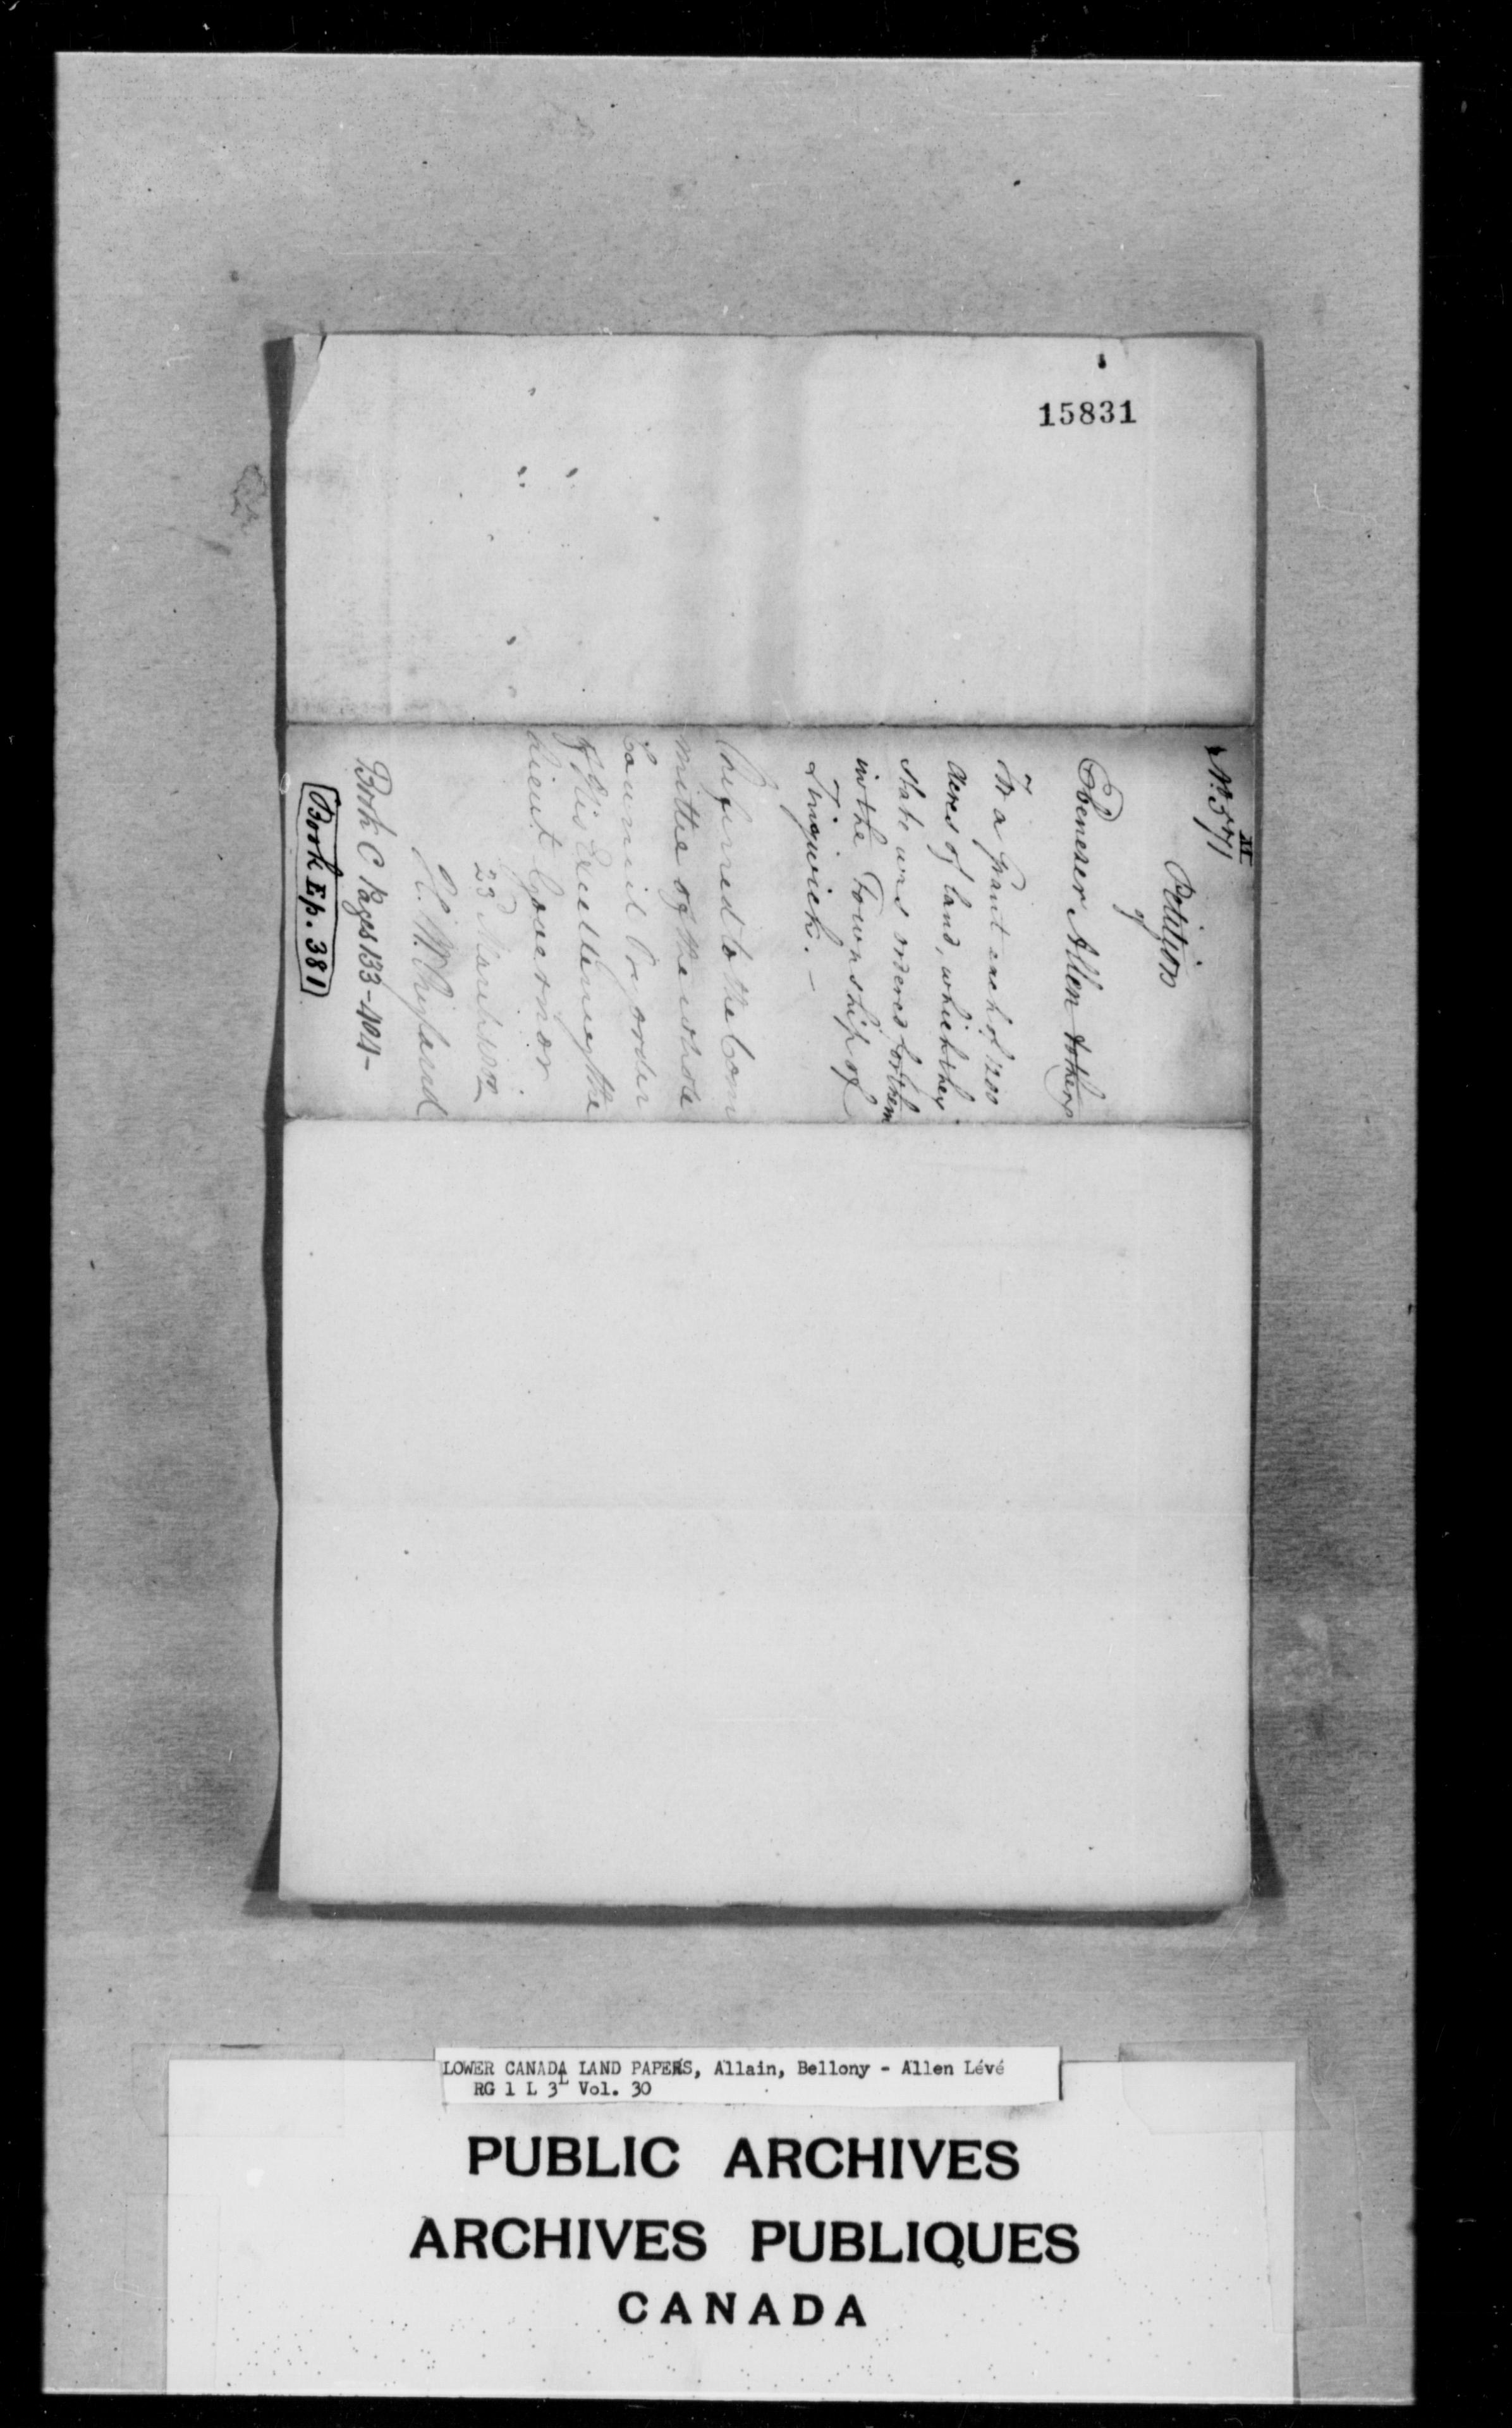 15831
No. 571
II
Petition
of
Ebenezer Allen & others
For a Grant each of 1200
Acres of land, which they
State was ordered for them
in the Township of
Tingwick. –
Referred to the Com
mittee of the whole
Council by order
of His Excellency the
Lieut. Governor
23d March
H. W. Ryland
Book C Pages 133-404-
Book E p. 381
LOWER CANADA LAND PAPERS, Allain, Bellony - Allen Lévé
RG 1 L 3L Vol. 30
PUBLIC ARCHIVES
ARCHIVES PUBLIQUES
CANADA